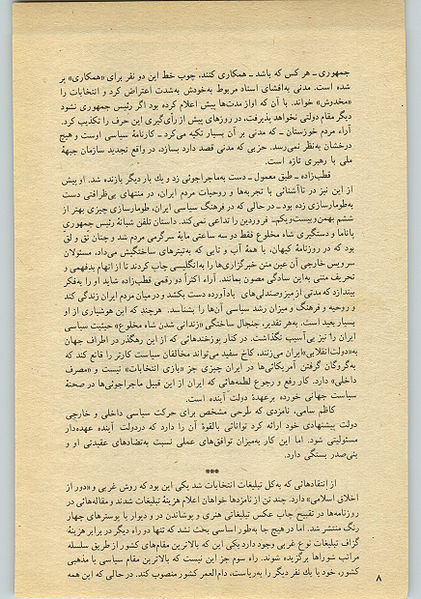 جمهوری ــ هر کس که باشد ــ همکاری کنند، چوب خط این دو نفر برای «همکاری» پر
شده است. مدنی به‌افشای اسناد مربوط به‌خودش به‌شدت اعتراض کرد و انتخابات را
«مخدوش» خواند. با آن که او از مدت‌ها پیش اعلام کرده بود اگر رئیس جمهوری نشود
دیگر مقام دولتی نخواهد پذیرفت، در روزهای پیش از رأی‌گیری این حرف را تکذیب کرد.
آراء مردم خوزستان ــ که مدنی بر آن بسیار تکیه می‌کرد ــ کارنامهٔ سیاسی اوست و هیچ
درخشان به‌نظر نمی‌رسد. حزبی که مدنی قصد دارد بسازد، در واقع تجدید سازمان جبههٔ
ملی با رهبری تازه است.
قطب‌زاده ــ طبق معمول ــ دست به‌ماجراجوئی زد و یك بار دیگر بازنده شد. او پیش
از این نیز در ناآشنائی با تجربه‌ها و روحیات مردم ایران، در منتهای بی‌ظرافتی دست
به‌طومارسازی زده بود ــ در حالی که در فرهنگ سیاسی ایران، طومارسازی چیزی بهتر از
ششم بهمن و بیست‌ویکم فروردین را تداعی نمی‌کند. داستان تلفن شبانهٔ رئیس جمهوری
پاناما و دستگیری شاه مخلوع فقط دو سه ساعتی مایهٔ سرگرمی مردم شد و چنان تق و لق
بود که در روزنامهٔ کیهان، با همهٔ آب و تابی که به‌تیترهای ساختگیش می‌داد، مسئولان
سرویس خارجی آن عین متن خبرگزاری‌ها را به‌انگلیسی چاپ کردند تا از اتهام بدفهمی و
تحریف متنی به‌این سادگی مصون بمانند. آراء اکثراً دو رقمی قطب‌زاده شاید او را به‌فکر
بیندازد که مدتی از میزوصندلی‌های بادآورده دست بکشد و در میان مردم ایران زندگی کند
و روحیه و فرهنگ و میزان رشد سیاسی آن‌ها را بشناسد. هرچند که این هوشیاری از او
بسیار بعید است. به‌هر تقدیر، جنجال ساختگی «زندانی شدن شاه مخلوع» حیثیت سیاسی
ایران را نیز بی‌آسیب نگذاشت. در کنار پوزخندهائی که از این رهگذر در اطراف جهان
به‌«دولت انقلابی» ایران می‌زنند، کاخ سفید می‌تواند مخالفان سیاست کارتر را قانع کند که
به‌گروگان گرفتن آمریکائی‌ها در ایران چیزی جز «بازی انتخابات» نیست و «مصرف
داخلی» دارد. کار رفع و رجوع لطمه‌هائی که ایران از این قبیل ماجراجوئی‌ها در صحنهٔ
سیاست جهانی خورده برعهدهٔ دولت آینده است.
کاظم سامی، نامزدی که طرحی مشخص برای حرکت سیاسی داخلی و خارجی
دولت پیشنهادی خود ارائه کرد توانائی بالقوهٔ آن را دارد که در دولت آینده عهده‌دار
مسئولیتی شود. اما این کار به‌میزان توافق‌های عملی نسبت به‌تضادهای عقیدتی او و
بنی‌صدر بستگی دارد.
***
از انتقادهائی که به‌کل تبلیغات انتخابات شد یکی این بود که روش غربی و «دور از
اخلاق اسلامی» دارد. چند تن از نامزدها خواهان اعلام هزینهٔ تبلیغات شدند و مقاله‌هائی در
روزنامه‌ها در تقبیح چاپ عکس تبلیغاتی هنری و پوشاندن در و دیوار با پوسترهای چهار
رنگ منتشر شد. اما در هیچ جا به‌طور اساسی بحث نشد که تنها دو راه دیگر در برابر هزینهٔ
گزاف تبلیغات نوع غربی وجود دارد یکی این که بالاترین مقام‌های کشور از طریق سلسله
مراتب شوراها برگزیده شوند. راه سوم جز این نیست که بالاترین مقام سیاسی یا مذهبی
کشور، خود یا یك نفر دیگر را به‌ریاست، دام‌العمر کشور منصوب کند. در حالی که این همه
۸